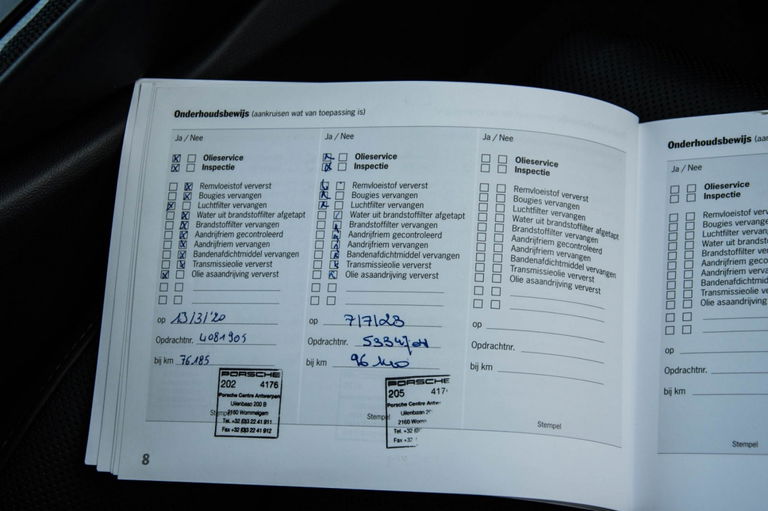 Onderhoudsbewijs (aankruisen wat van toepassing is)
Ja / Nee
Olieservice
Inspectie
Remvloeistof ververst
Bougies vervangen
Luchtfilter vervangen
Water uit brandstoffilter afgetapt
Brandstoffilter vervangen
Aandrijfriem gecontroleerd
Aandrijfriem vervangen
Bandenafdichtmiddel vervangen
Transmissieolie ververst
Olie asaandrijving ververst
op 13/3/20
Opdrachtnr. 4081905
bij km 76185
PORSCHE
202 4176
Porsche Centre Antwerpen
Uilenbaan 200 B
2160 Wommelgem
Tel. +32 (0)3 22 41 911
Fax +32 (0)3 22 41 912
Ja / Nee
Olieservice
Inspectie
Remvloeistof ververst
Bougies vervangen
Luchtfilter vervangen
Water uit brandstoffilter afgetapt
Brandstoffilter vervangen
Aandrijfriem gecontroleerd
Aandrijfriem vervangen
Bandenafdichtmiddel vervangen
Transmissieolie ververst
Olie asaandrijving ververst
op 7/7/23
Opdrachtnr.
bij km
Stempel
PORSCHE
205 417
Porsche Centre Antw
Uilenbaan 2
2160 Womm
Tel. +32
Fax +32
Ja / Nee
Olieservice
Inspectie
Remvloeistof ververst
Bougies vervangen
Luchtfilter vervangen
Water uit brandstoffilter afgetapt
Brandstoffilter vervangen
Aandrijfriem gecontroleerd
Aandrijfriem vervangen
Bandenafdichtmiddel vervangen
Transmissieolie ververst
Olie asaandrijving ververst
op
Opdrachtnr.
bij km
Stempel
8
Onderhoudsbewijs (aa
Ja / Nee
Olieservice
Inspectie
Remvloeistof ve
Bougies vervange
Luchtfilter vervan
Water uit brandst
Brandstoffilter ve
Aandrijfriem geco
Aandrijfriem verva
Bandenafdichtmid
Transmissieolie ve
Olie asaandrijving
op
Opdrachtnr.
bij km
Stempel